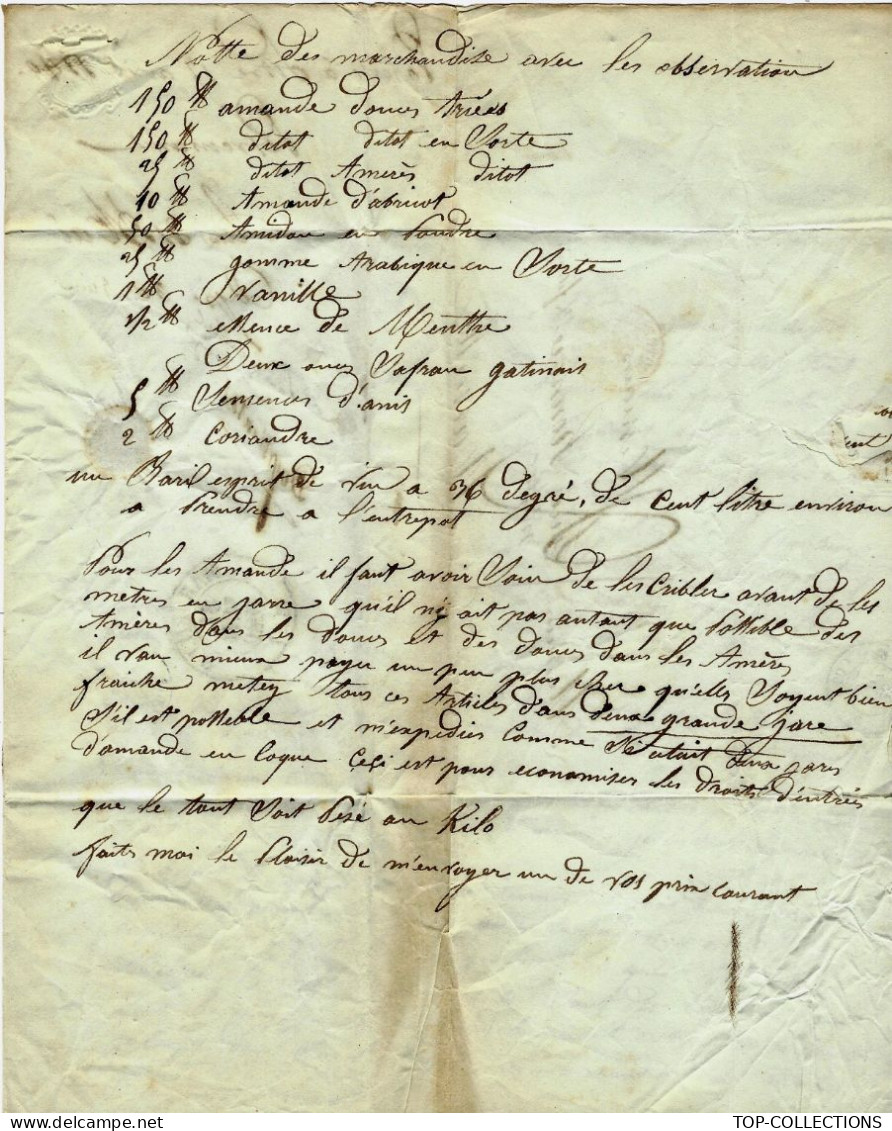 Notte des marchandise avec les observation
150 ℔ amande douces triées
150 ℔ ditot ditot en Sorte
25 ℔ ditot Amerès ditot
10 ℔ Amande d'abricot
50 ℔ Amidon en Poudre
25 ℔ gomme Arabique en Sorte
1 ℔ Vanille
1/2 ℔ essence de Menthe
Deux onces Safran gatinais
5 ℔ Semences d'anis
2 ℔ Coriandre
un Baril esprit de Vin a 36 degré, de cent litre environ
a Prendre a l'entrepot
Pour les Amande il faut avoir Soin de les Cribler avant de les
metres en jarre qu'il n'y ait pas autant que Possible des
Amères dans les douces et des douces dans les Amères
il vau mieux payer un peu plus cher qu'elle Soyent bien
fraiche metez tous ces Articles dans deux grande jare
S'il est possible et m'expedies Comme S'etait deux jares
d'amande en Coque Ceci est pour economiser les droits d'entrées
que le tout Soit Pesé au Kilo
faits moi le Plaisir de m'envoyer un de vos prix courant
TOP-COLLECTIONS